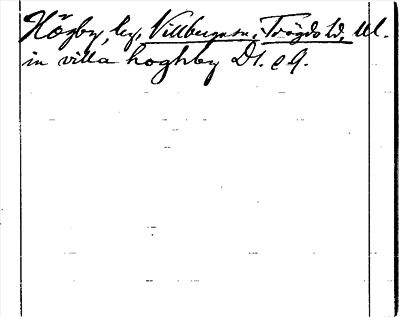 Högby, by, Villberga sn, Trögds hd, Upl.
in villa hoghby D1. e 9.